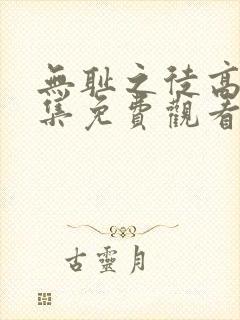 無耻之徒高
集免費觀看
古靈月